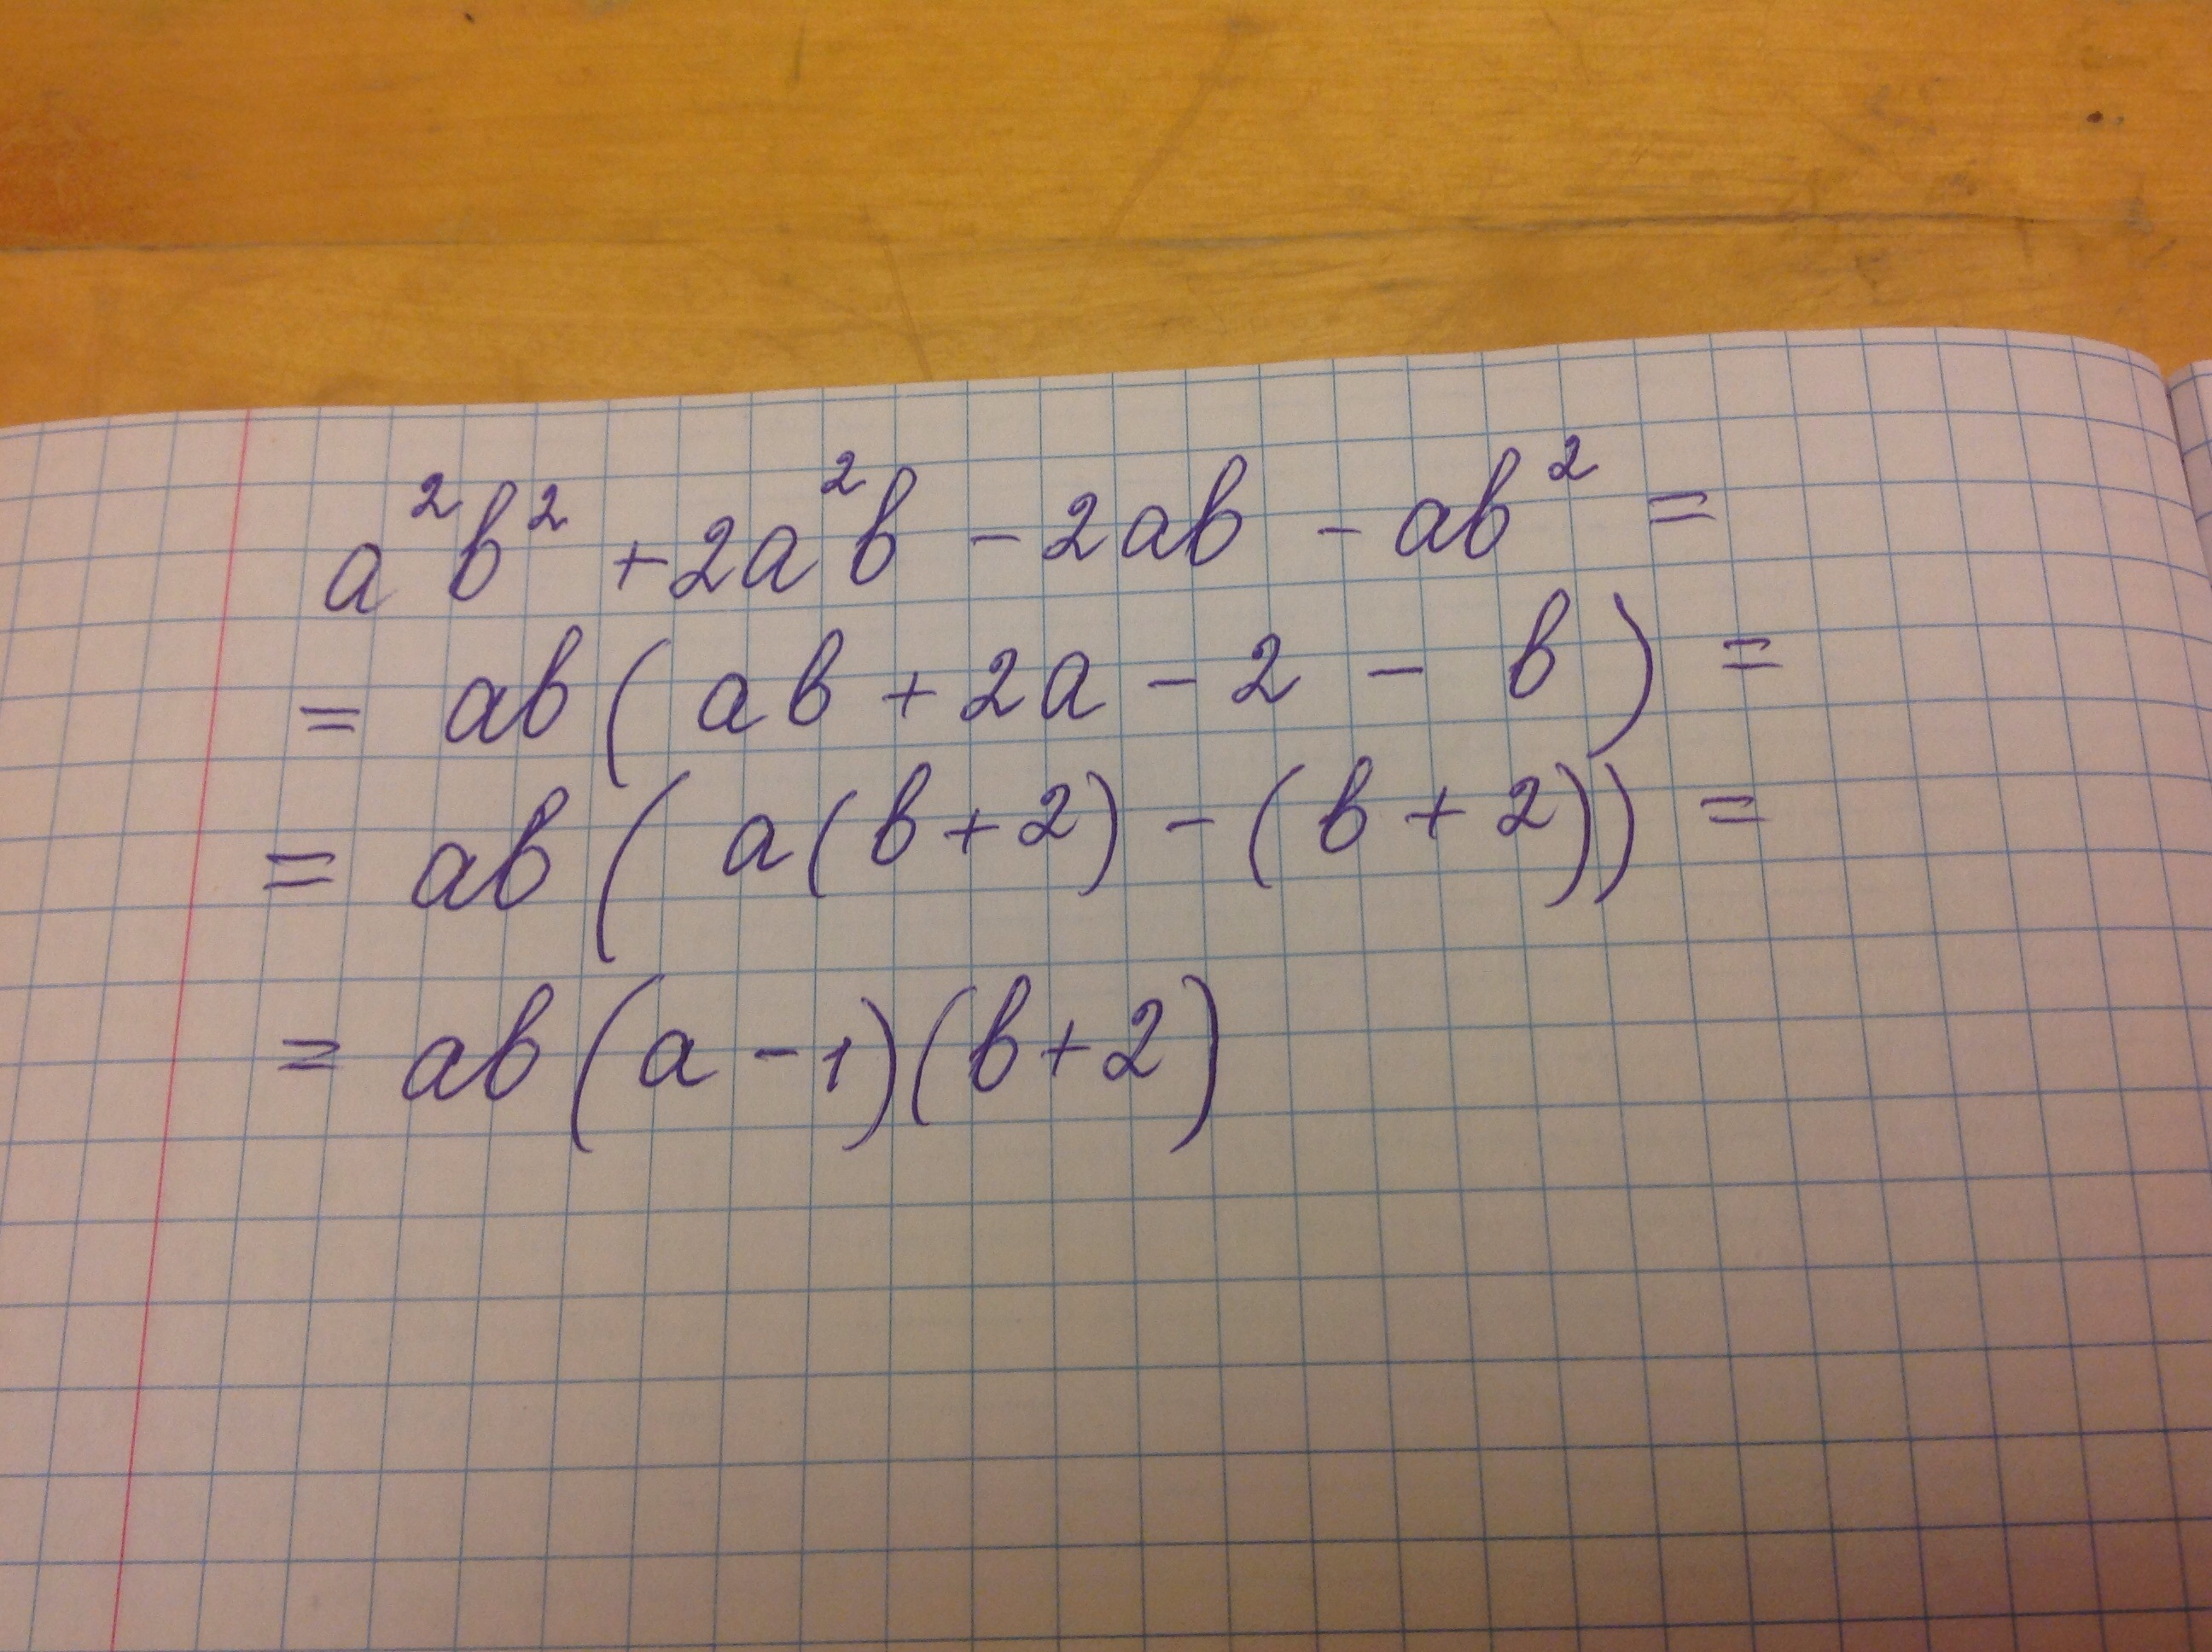 a²b² + 2a²b - 2ab - ab² =
= ab( ab + 2a - 2 - b) =
= ab( a(b+2) - (b+2)) =
= ab(a-1)(b+2)